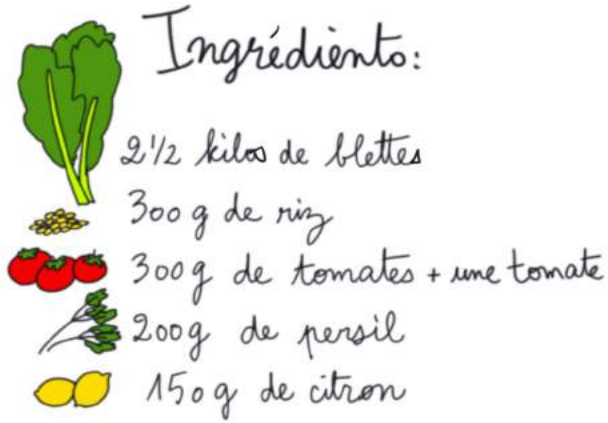 Ingrédients:
2 1/2 kilos de blettes
300 g de riz
300g de tomates + une tomate
200g de persil
150 g de citron